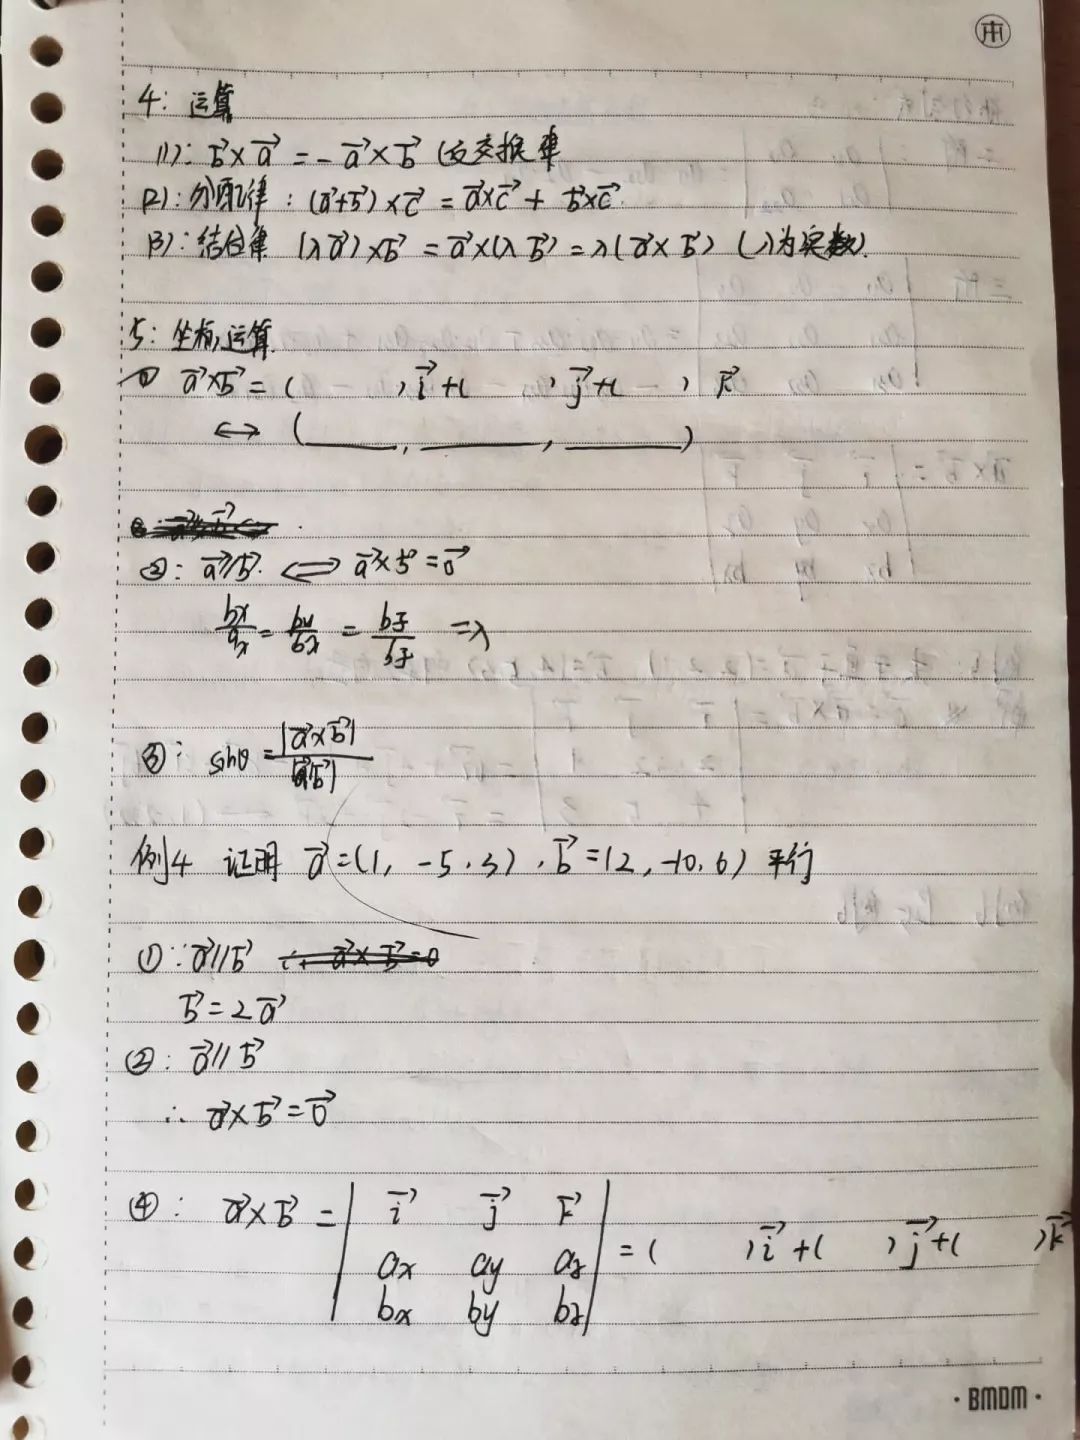 4: 运算
(1): b⃗×a⃗ = -a⃗×b⃗ (反交换律
(2): 分配律: (a⃗+b⃗)×c⃗ = a⃗×c⃗ + b⃗×c⃗.
(3): 结合律 (λa⃗)×b⃗ = a⃗×(λb⃗) = λ(a⃗×b⃗) (λ为实数).
5: 坐标运算
① a⃗×b⃗ = ( )i⃗ + ( )j⃗ + ( ) k⃗
↔ (____, ____, ____)
②: a⃗∥b⃗. ⟺ a⃗×b⃗ = 0⃗
bx/ax = by/bx = bz/bz = λ
③: sinθ = |a⃗×b⃗| / |a⃗||b⃗|
例4 证明 a⃗=(1, -5, 3), b⃗=(2, -10, 6) 平行
① ∵ a⃗∥b⃗
b⃗ = 2a⃗
②: a⃗∥b⃗
∴ a⃗×b⃗ = 0⃗
④: a⃗×b⃗ = | i⃗ j⃗ k⃗ | = ( )i⃗ + ( )j⃗ + ( )k⃗
ax ay az
bx by bz
BMDM